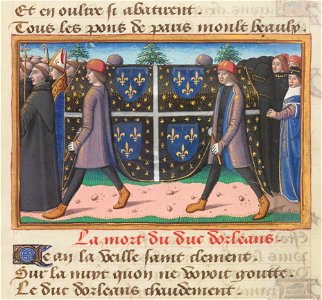 Et en oultre si abatirent.
Tous les pons de paris moult beaulx.
La mort du duc dorleans.
Lean la veille saint clement.
Sur la nuyt quon ne voyoit goutte.
Le duc dorleans chauldement.